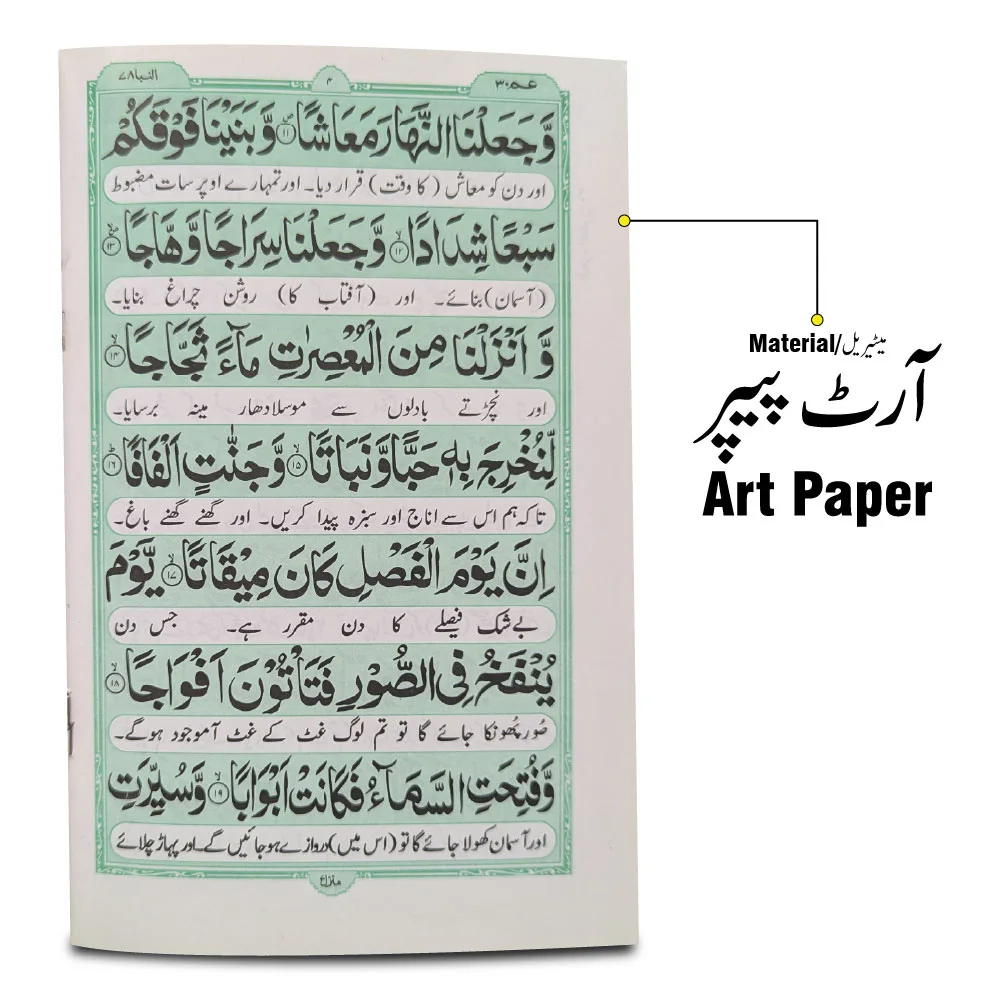 عم ۳۰
۴
النبا ۷۸
وَّجَعَلْنَا النَّهَارَ مَعَاشًا ۱۱ وَّبَنَيْنَا فَوْقَكُمْ
اور دن کو معاش (کا وقت) قرار دیا۔ اور تمہارے اوپر سات مضبوط
سَبْعًا شِدَادًا ۱۲ وَّجَعَلْنَا سِرَاجًا وَّهَّاجًا ۱۳
(آسمان) بنائے۔ اور (آفتاب کا) روشن چراغ بنایا۔
وَّ اَنْزَلْنَا مِنَ الْمُعْصِرٰتِ مَآءً ثَجَّاجًا ۱۴
اور نچڑتے بادلوں سے موسلادھار مینہ برسایا۔
لِّنُخْرِجَ بِهٖ حَبًّا وَّنَبَاتًا ۱۵ وَّجَنّٰتٍ اَلْفَافًا ۱۶
تاکہ ہم اس سے اناج اور سبزہ پیدا کریں۔ اور گھنے گھنے باغ۔
اِنَّ يَوْمَ الْفَصْلِ كَانَ مِيْقَاتًا ۱۷ يَّوْمَ
بے شک فیصلے کا دن مقرر ہے۔ جس دن
يُنْفَخُ فِى الصُّوْرِ فَتَاْتُوْنَ اَفْوَاجًا ۱۸
صُور پھونکا جائے گا تو تم لوگ غٹ کے غٹ آموجود ہوگے۔
وَّفُتِحَتِ السَّمَآءُ فَكَانَتْ اَبْوَابًا ۱۹ وَّسُيِّرَتِ
اور آسمان کھولا جائے گا تو (اس میں) دروازے ہوجائیں گے۔ اور پہاڑ چلائے
Material/میٹیریل
آرٹ پیپر
Art Paper